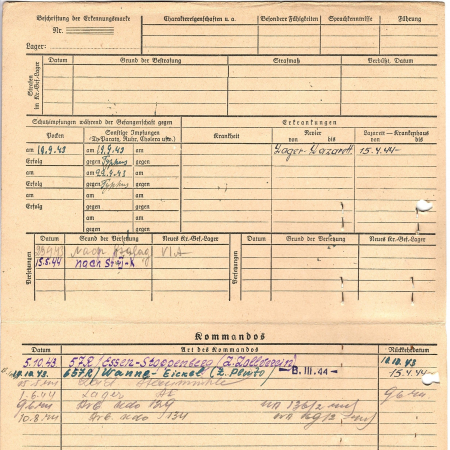 Beschriftung der Erkennungsmarke
Nr.
Lager:
Charaktereigenschaften u. a.
Besondere Fähigkeiten
Sprachkenntnisse
Führung
Strafen im Kr.-Gef.-Lager
Datum
Grund der Bestrafung
Strafmaß
Verbüßt, Datum
Schutzimpfungen während der Gefangenschaft gegen
Erkrankungen
Pocken
Sonstige Impfungen
(Ty-Paratyph, Ruhr, Cholera usw.)
Krankheit
Revier
von bis
Lazarett – Krankenhaus
von bis
am 19.9.43 am 19.9.43 am
Lager-Lazarett 15.4.44-
Erfolg gegen Typhus gegen
am am 22.9.43 am
Erfolg gegen Typhus gegen
am am am
Erfolg gegen gegen
am am
gegen gegen
Versetzungen
Datum
Grund der Versetzung
Neues Kr.-Gef.-Lager
Datum
Grund der Versetzung
Neues Kr.-Gef.-Lager
nach VI A
15.5.44 nach
Kommandos
Datum
Art des Kommandos
Rückkehrdatum
5.10.43 57R/Essen-Stoppenberg (Z. Zollverein)
10.43 657R/Wanne-Eickel (Z. Pluto) – 8. III. 44 – 15.4.44
1.6.44 Lager
9.6.44 Arb. Kdo
10.8.44 Arb. Kdo 134